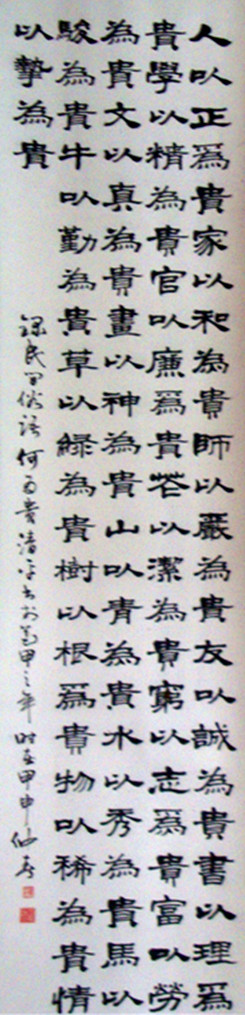 人以正為貴家以和為貴師以嚴為貴友以誠為貴書以理為
貴學以精為貴官以廉為貴花以潔為貴窮以志為貴富以勞
為貴文以真為貴畫以神為貴山以青為貴水以秀為貴馬以
駿為貴牛以勤為貴草以綠為貴樹以根為貴物以稀為貴情
以摯為貴